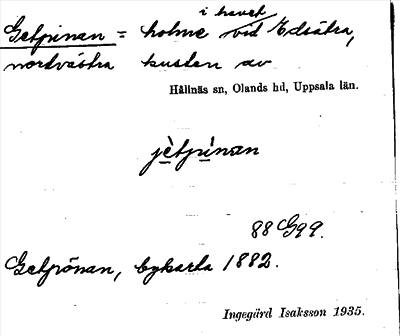 i havet
Getpinan = holme vid Edsätra,
nordvästra kusten av
Hållnäs sn, Olands hd, Uppsala län.
jètpìnan
88 G99.
Getpönan, bykarta 1882.
Ingegärd Isaksson 1935.